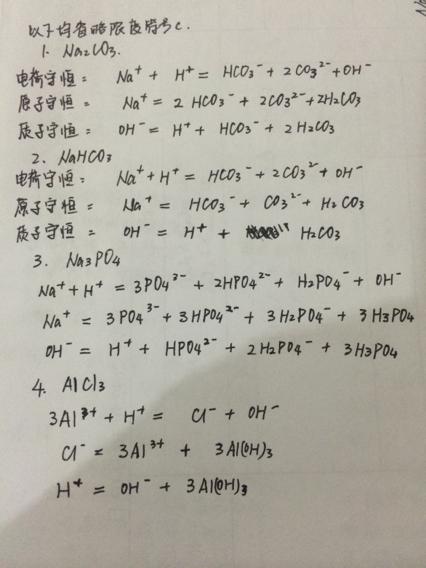 以下均省略浓度符号c.
1. Na₂CO₃.
电荷守恒: Na⁺ + H⁺ = HCO₃⁻ + 2CO₃²⁻ + OH⁻
原子守恒: Na⁺ = 2HCO₃⁻ + 2CO₃²⁻ + 2H₂CO₃
质子守恒: OH⁻ = H⁺ + HCO₃⁻ + 2H₂CO₃
2. NaHCO₃
电荷守恒: Na⁺ + H⁺ = HCO₃⁻ + 2CO₃²⁻ + OH⁻
原子守恒: Na⁺ = HCO₃⁻ + CO₃²⁻ + H₂CO₃
质子守恒: OH⁻ = H⁺ + H₂CO₃
3. Na₃PO₄
Na⁺ + H⁺ = 3PO₄³⁻ + 2HPO₄²⁻ + H₂PO₄⁻ + OH⁻
Na⁺ = 3PO₄³⁻ + 3HPO₄²⁻ + 3H₂PO₄⁻ + 3H₃PO₄
OH⁻ = H⁺ + HPO₄²⁻ + 2H₂PO₄⁻ + 3H₃PO₄
4. AlCl₃
3Al³⁺ + H⁺ = Cl⁻ + OH⁻
Cl⁻ = 3Al³⁺ + 3Al(OH)₃
H⁺ = OH⁻ + 3Al(OH)₃